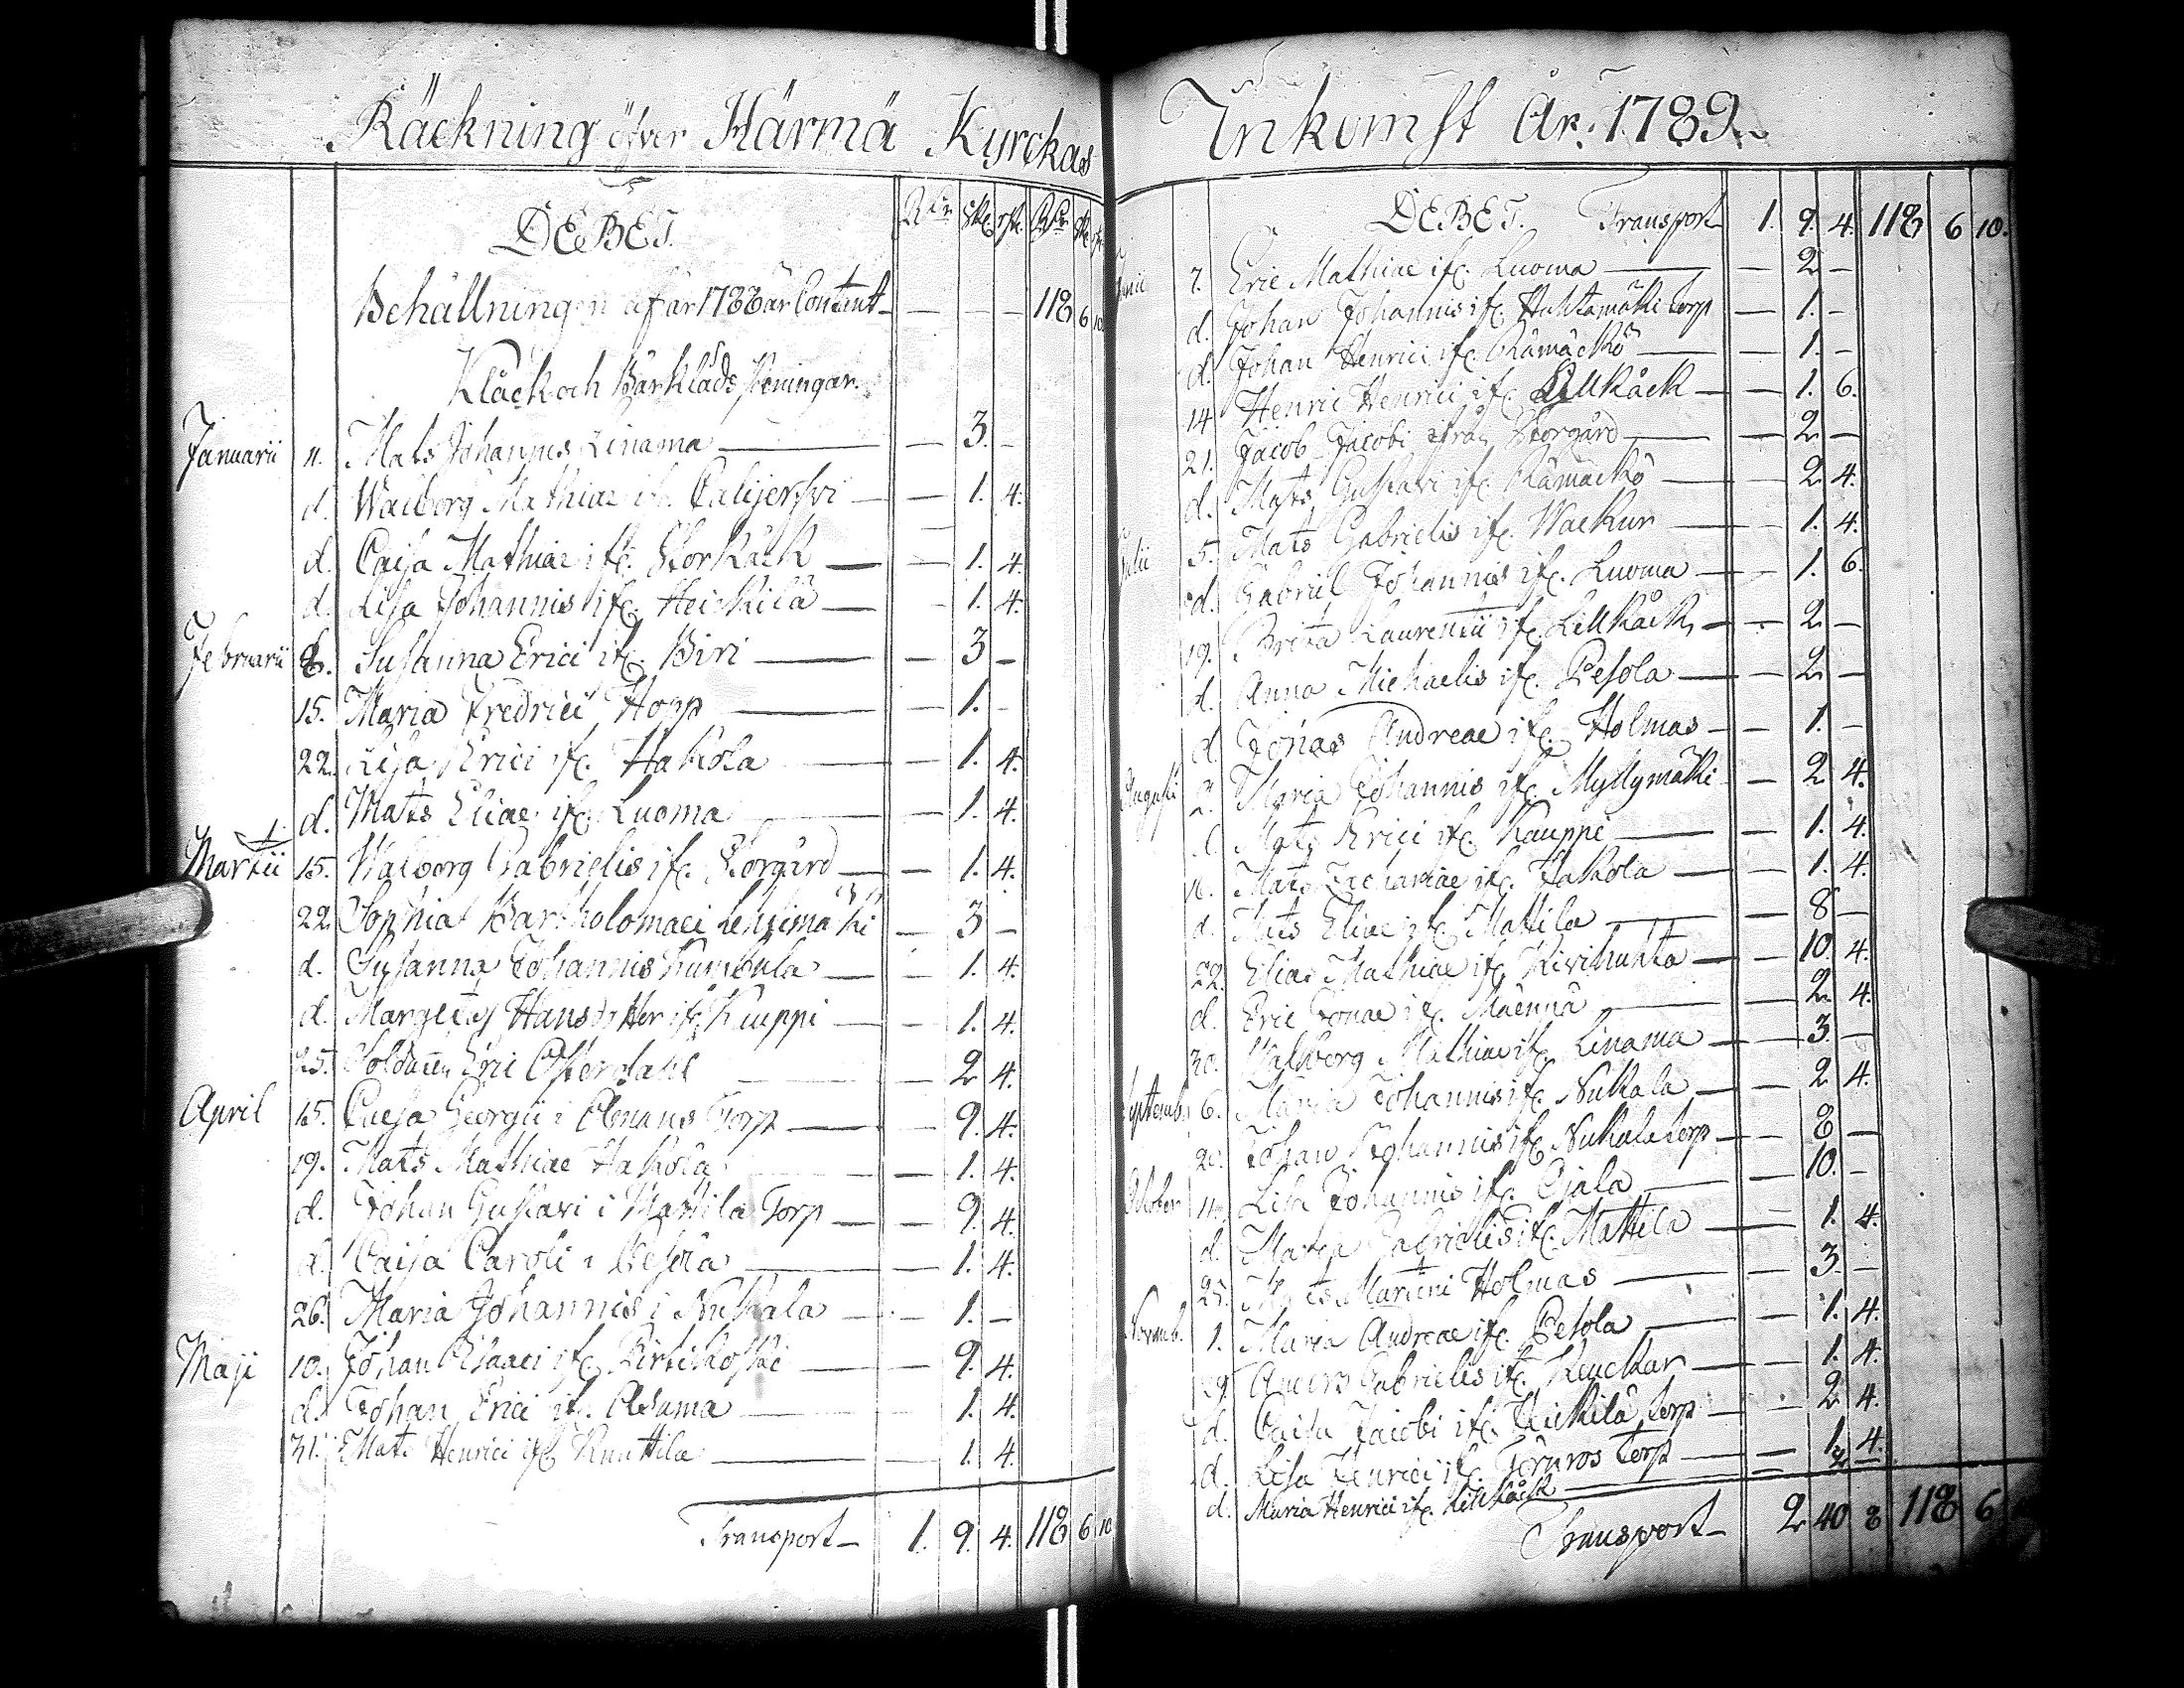 Räckning öfver Härmä Kyrckas
DEBET. Rdr. Sk. rst. Rdr. Sk. rst.
Behållningen af år 1788 är Contant — — — 118 6 10
Klåck och Bårkläds Peningar.
Januarii 11. Mats Johannis Linama — — 3. —
d. Walborg Mathiae if. — 1. 4.
d. Caisa Mathiae if. Storkåck — — 1. 4.
d. Lisa Johannis if. Heickilä — — 1. 4.
Februarii 8. Susanna Erici if. Biri — — 3 —
15. Maria Fredrici Hopp — — 1. —
22. Lisa Erici if. Hakola — — 1. 4.
d. Mats Eliae if. Luoma — 1. 4.
Martii 15. Walborg Gabrielis if. Storgård — — 1. 4.
22. Sophia Bartholomaei Lehzimäki — 3 —
d. Susanna Johannis Kumbula — — 1. 4.
d. Margeta Hansdotter if. Kauppi — — 1. 4.
25. Soldaten Eric Österdahl — — 2 4.
April 15. Caisa Georgii i Amans Torp — — 9. 4.
19. Mats Mathiae Hakola — — 1. 4.
d. Johan Gustavi i Mattila Torp — — 9. 4.
d. Caisa Caroli i Pesola — — 1. 4.
26. Maria Johannis i Nukala — — 1. —
Maji 10. Johan Isaaci if. Pirtikoski — — 9. 4.
d. Johan Erici if. Asuma — — 1. 4.
31. Mats Henrici if. Knuttila — — 1. 4.
Transport — 1. 9. 4. 118 6 10
Inkomst År. 1789.
DEBET. Transport 1. 9. 4. 118 6 10.
7. Eric Mathiae if. Luoma — — 2 —
d. Johan Johannis if. Huhtamäki Torp — 1. —
d. Johan Henrici if. Kämäckö — — 1. —
14. Henric Henrici if. Lillkåck — — 1. 6.
21. Jacob Jacobi ifrån Storgård — — 2 —
d. Mats Gustavi if. Kämäckö — — 2 4.
Julii 5. Mats Gabrielis if. Wackur — — 1. 4.
d. Gabriel Johannis if. Luoma — — 1. 6.
19. Brita Laurentii if. Lillkåck — — 2 —
d. Anna Michaelis if. Pesola — — 2 —
d. Jonas Andreae if. Holmas — — 1. —
Augusti 2. Maria Johannis if. Myllymäki — 2 4.
d. Mats Erici if. Kauppi — — 1. 4.
16. Mats Zachariae if. Hakola — — 1. 4.
d. Mats Eliae if. Mattila — — 8 —
22. Elias Mathiae if. Kivihuhta — — 10. 4.
d. Eric Jonae if. Mäenpä — — 2 4.
30. Walborg Mathiae if. Linama — — 3 —
Septemb. 6. Maria Johannis if. Nukala — — 2 4.
20. Johan Johannis if. Nukala torp — — 8 —
October 11. Lisa Johannis if. Ojala — — 10. —
d. Maria Gabrielis if. Mattila — — 1. 4.
25. Mats Martini Holmas — — 3 —
Novemb. 1. Maria Andreae if. Pesola — — 1. 4.
29. Anders Gabrielis if. Keuckar — — 1. 4.
d. Caisa Jacobi if. Heickilä torp — — 2 4.
d. Lisa Henrici if. Torp — — 1. 4.
d. Maria Henrici if. Lillkåck — — 2 —
Transport — 2 40 8 118 6